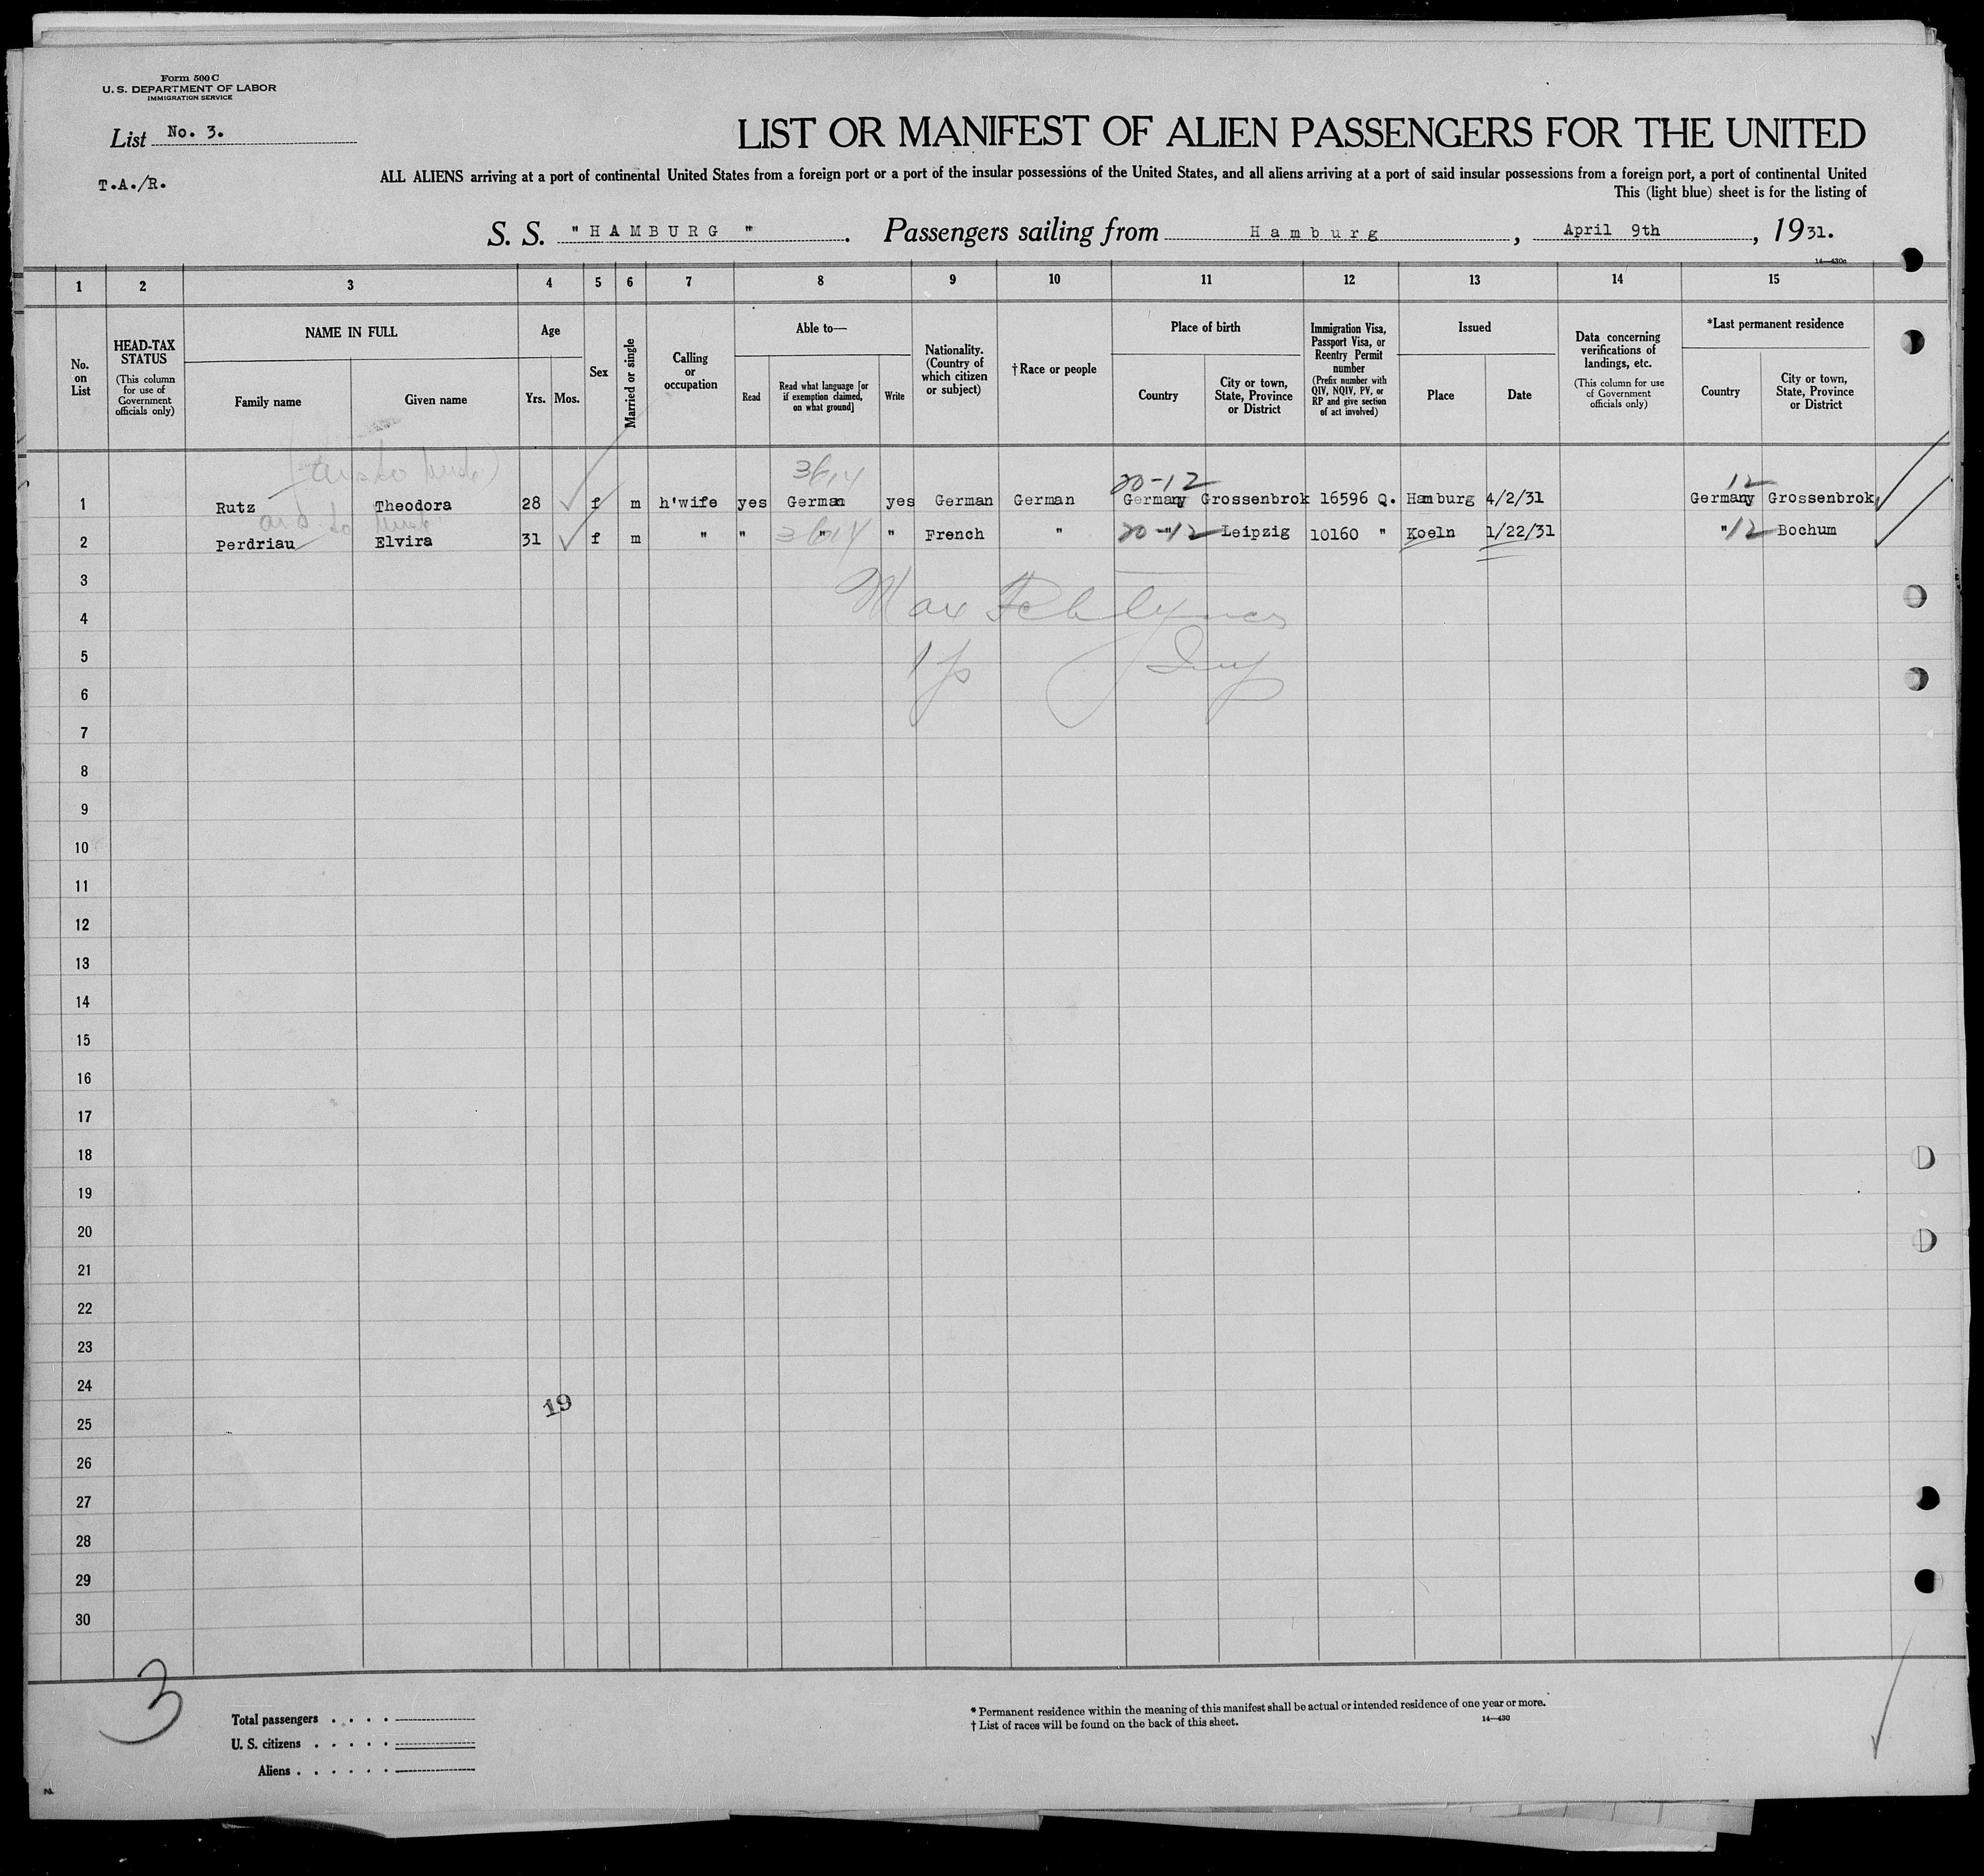 Form 500 C
U. S. DEPARTMENT OF LABOR
IMMIGRATION SERVICE
List No. 3.
T.A./R.
LIST OR MANIFEST OF ALIEN PASSENGERS FOR THE UNITED
ALL ALIENS arriving at a port of continental United States from a foreign port or a port of the insular possessions of the United States, and all aliens arriving at a port of said insular possessions from a foreign port, a port of continental United
This (light blue) sheet is for the listing of
S. S. "HAMBURG". Passengers sailing from Hamburg, April 9th, 1931.
14—430c
1 2 3 4 5 6 7 8 9 10 11 12 13 14 15
No. on List
HEAD-TAX STATUS (This column for use of Government officials only)
NAME IN FULL
Family name Given name
Age
Yrs. Mos.
Sex
Married or single
Calling or occupation
Able to—
Read Read what language [or if exemption claimed, on what ground] Write
Nationality. (Country of which citizen or subject)
† Race or people
Place of birth
Country City or town, State, Province or District
Immigration Visa, Passport Visa, or Reentry Permit number (Prefix number with QIV, NQIV, PV, or RP and give section of act involved)
Issued
Place Date
Data concerning verifications of landings, etc. (This column for use of Government officials only)
*Last permanent residence
Country City or town, State, Province or District
3614 20-12 12
1 Rutz Theodora 28 f m h'wife yes German yes German German Germany Grossenbrok 16596 Q. Hamburg 4/2/31 Germany Grossenbrok
2 Perdriau Elvira 31 f m " " " 3614 " French " 20-"12 Leipzig 10160 " Koeln 1/22/31 " 12 Bochum
3
4 Max
5
6
7
8
9
10
11
12
13
14
15
16
17
18
19
20
21
22
23
24
19
25
26
27
28
29
30
3
Total passengers . . . .
U. S. citizens . . . . .
Aliens . . . . . .
* Permanent residence within the meaning of this manifest shall be actual or intended residence of one year or more.
† List of races will be found on the back of this sheet.
14—430